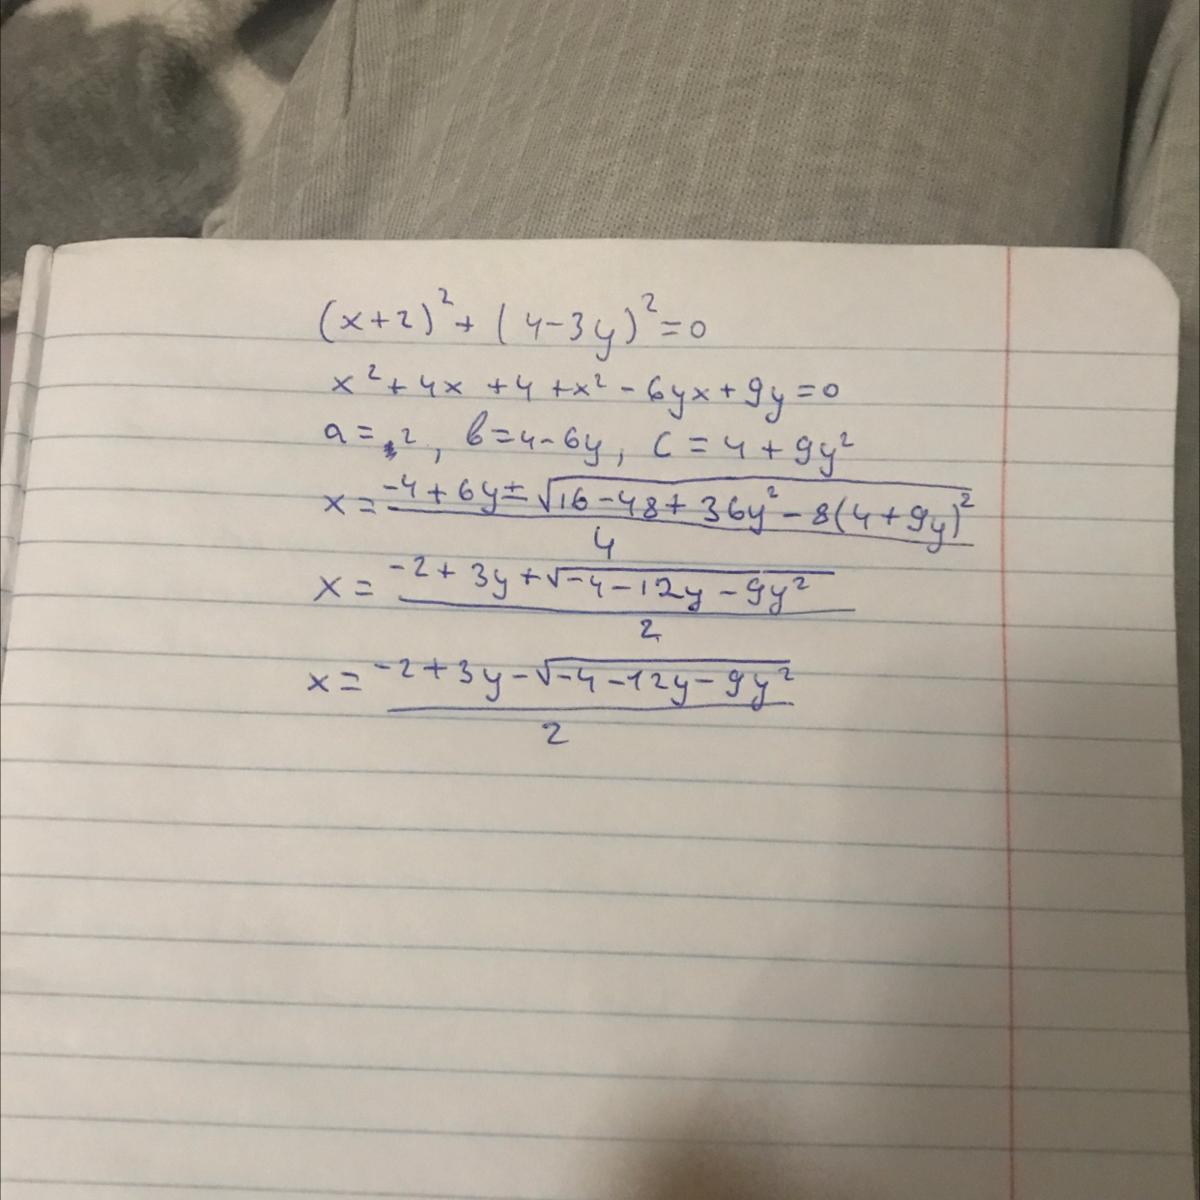 (x+2)²+(4-3y)²=0
x²+4x+4+x²-6yx+9y=0
a=2, b=4-6y, c=4+9y²
x=(-4+6y±√(16-48+36y²-8(4+9y)²))/4
x=(-2+3y+√(-4-12y-9y²))/2
x=(-2+3y-√(-4-12y-9y²))/2